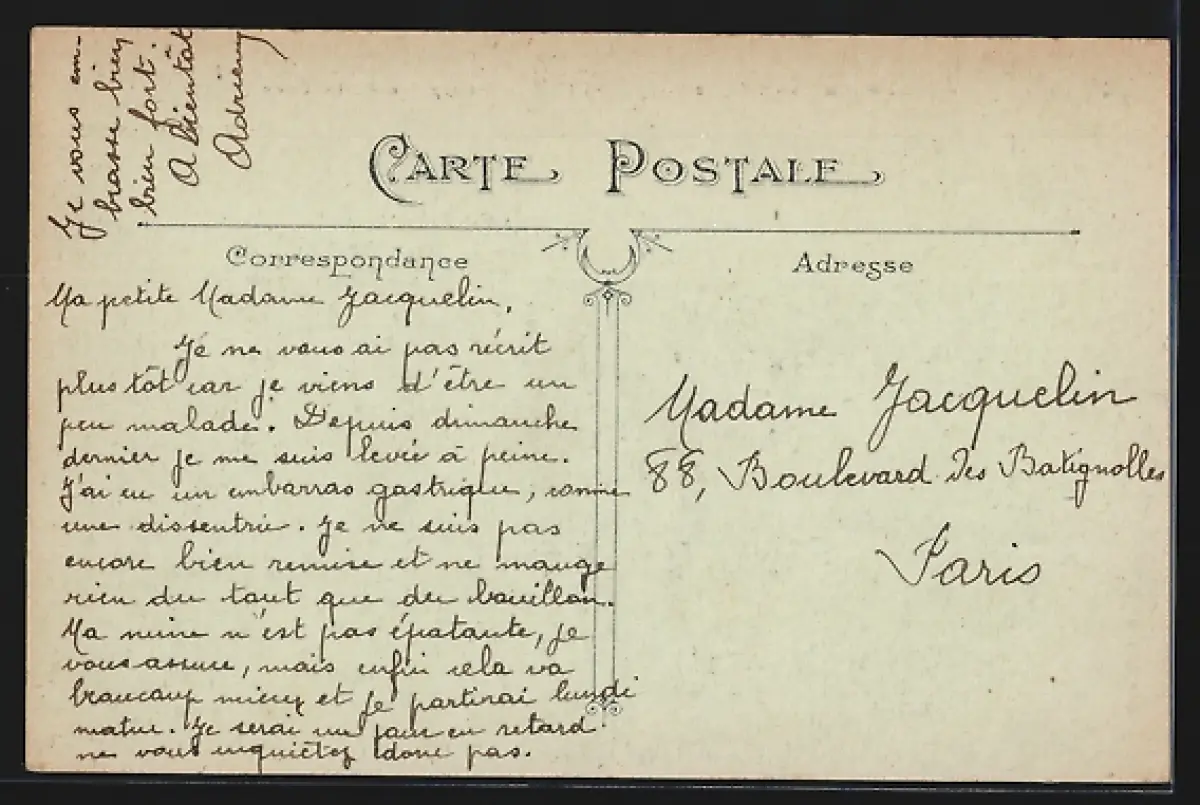 CARTE POSTALE
Correspondance
Adresse
Ma petite Madame Jacquelin,
Je ne vous ai pas récrit
plus tôt car je viens d'être un
peu malade. Depuis dimanche
dernier je me suis levée à peine.
J'ai eu un embarras gastrique, comme
une dissentrie. Je ne suis pas
encore bien remise et ne mange
rien du tout que du bouillon.
Ma mine n'est pas épatante, je
vous assure, mais enfin cela va
beaucoup mieux et je partirai lundi
matin. Je serai un jour en retard
ne vous inquiétez donc pas.
Je vous em-
brasse bien
bien fort.
A bientôt
Adrienny
Madame Jacquelin
88, Boulevard des Batignolles
Paris